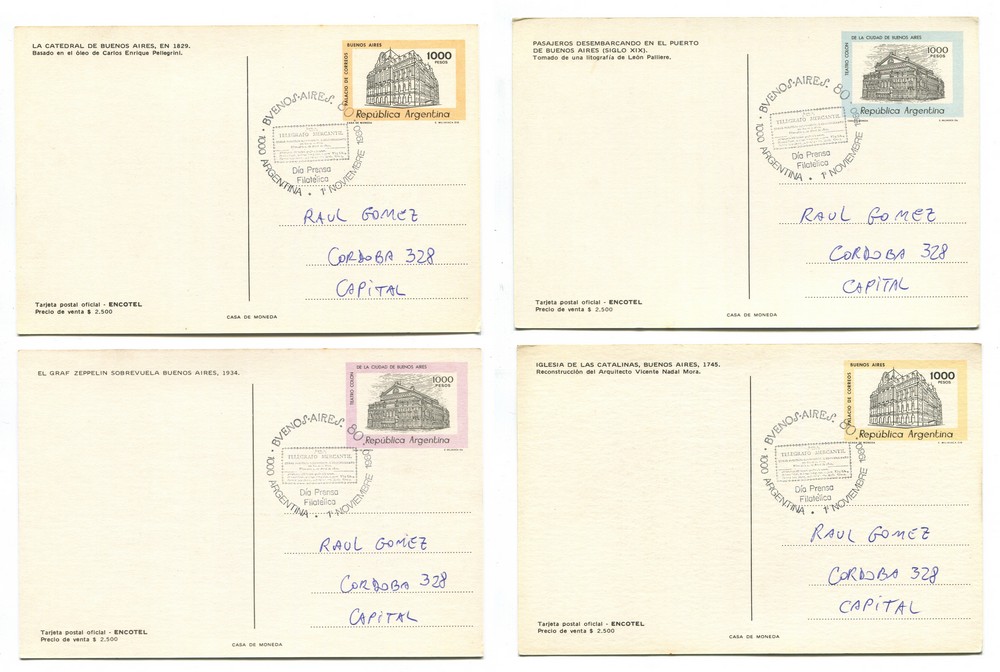 LA CATEDRAL DE BUENOS AIRES, EN 1829.
Basado en el óleo de Carlos Enrique Pellegrini.
BUENOS AIRES
PALACIO DE CORREOS
1000
PESOS
República Argentina
CASA DE MONEDA
BUENOS·AIRES·80·
1980
1000 ARGENTINA · 1º NOVIEMBRE
TELEGRAFO MERCANTIL
Día Prensa
Filatélica
RAUL GOMEZ
CORDOBA 328
CAPITAL
Tarjeta postal oficial - ENCOTEL
Precio de venta $ 2.500
CASA DE MONEDA
PASAJEROS DESEMBARCANDO EN EL PUERTO
DE BUENOS AIRES (SIGLO XIX).
Tomado de una litografía de León Palliere.
DE LA CIUDAD DE BUENOS AIRES
TEATRO COLON
1000
PESOS
República Argentina
BUENOS·AIRES·80·
1980
1000 ARGENTINA · 1º NOVIEMBRE
TELEGRAFO MERCANTIL
Día Prensa
Filatélica
RAUL GOMEZ
CORDOBA 328
CAPITAL
Tarjeta postal oficial - ENCOTEL
Precio de venta $ 2.500
CASA DE MONEDA
EL GRAF ZEPPELIN SOBREVUELA BUENOS AIRES, 1934.
DE LA CIUDAD DE BUENOS AIRES
TEATRO COLON
1000
PESOS
República Argentina
BUENOS·AIRES·80·
1980
1000 ARGENTINA · 1º NOVIEMBRE
TELEGRAFO MERCANTIL
Día Prensa
Filatélica
RAUL GOMEZ
CORDOBA 328
CAPITAL
Tarjeta postal oficial - ENCOTEL
Precio de venta $ 2.500
CASA DE MONEDA
IGLESIA DE LAS CATALINAS, BUENOS AIRES, 1745.
Reconstrucción del Arquitecto Vicente Nadal Mora.
BUENOS AIRES
PALACIO DE CORREOS
1000
PESOS
República Argentina
BUENOS·AIRES·80·
1980
1000 ARGENTINA · 1º NOVIEMBRE
TELEGRAFO MERCANTIL
Día Prensa
Filatélica
RAUL GOMEZ
CORDOBA 328
CAPITAL
Tarjeta postal oficial - ENCOTEL
Precio de venta $ 2.500
CASA DE MONEDA